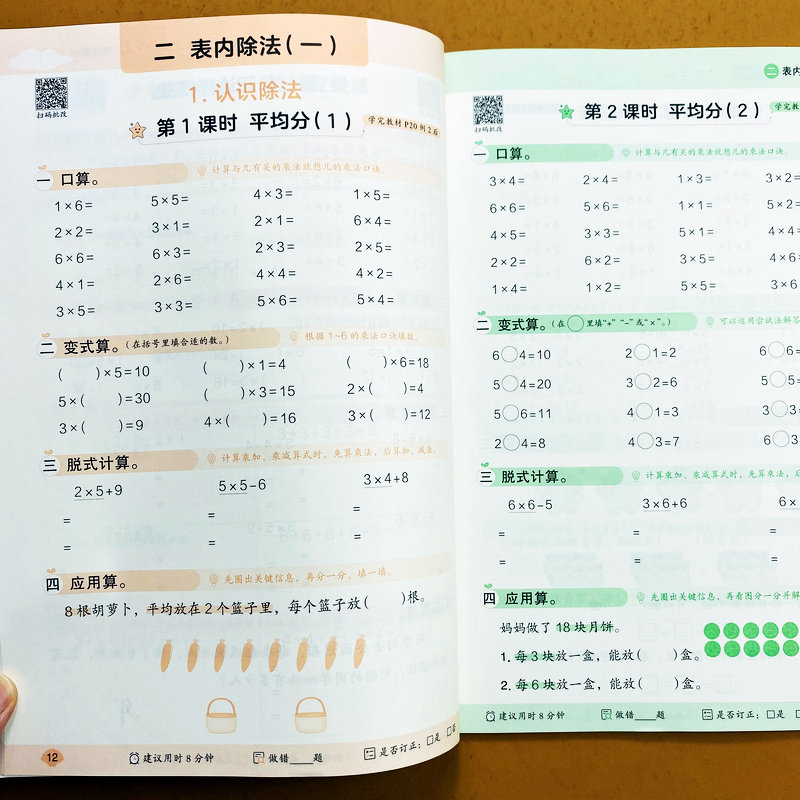 二 表内除法（一）
1. 认识除法
扫码批改
第1课时 平均分（1）
学完教材 P20 例 2 后
一 口算。
计算与几有关的乘法就想几的乘法口诀。
1×6= 5×5= 4×3= 1×5=
2×2= 3×1= 2×1= 6×4=
6×6= 6×3= 2×3= 2×5=
4×1= 2×6= 4×4= 4×2=
3×5= 3×3= 5×6= 5×4=
二 变式算。（在括号里填合适的数。）
根据 1~6 的乘法口诀填数。
( )×5=10 ( )×1=4 ( )×6=18
5×( )=30 ( )×3=15 2×( )=4
3×( )=9 4×( )=16 3×( )=12
三 脱式计算。
计算乘加、乘减算式时，先算乘法，后算加、减法。
2×5+9 5×5-6 3×4+8
= = =
= = =
四 应用算。
先圈出关键信息，再分一分、填一填。
8根胡萝卜，平均放在2个篮子里，每个篮子放( )根。
12
建议用时8分钟 做错____题 是否订正：□是 □否
二 表内
扫码批改
第2课时 平均分（2）
学完教
一 口算。
计算与几有关的乘法就想几的乘法口诀。
3×4= 2×4= 1×3= 3×2=
6×6= 5×6= 1×1= 5×2
4×5= 3×3= 5×1= 4×4
2×2= 6×2= 3×5= 4×6
1×4= 1×2= 5×5= 3×6
二 变式算。（在○里填“+”“-”或“×”。）
可以运用尝试法解答
6○4=10 2○1=2 6○6=
5○4=20 3○2=6 5○5=
5○6=11 4○1=3 3○3=
2○4=8 4○3=7 6○3
三 脱式计算。
计算乘加、乘减算式时，先算乘法，后
6×6-5 3×6+6 6×
= =
= =
四 应用算。
先圈出关键信息，再看图分一分并解
妈妈做了18块月饼。
1. 每3块放一盒，能放( )盒。
2. 每6块放一盒，能放( )盒。
建议用时8分钟 做错____题 是否订正：□是 □